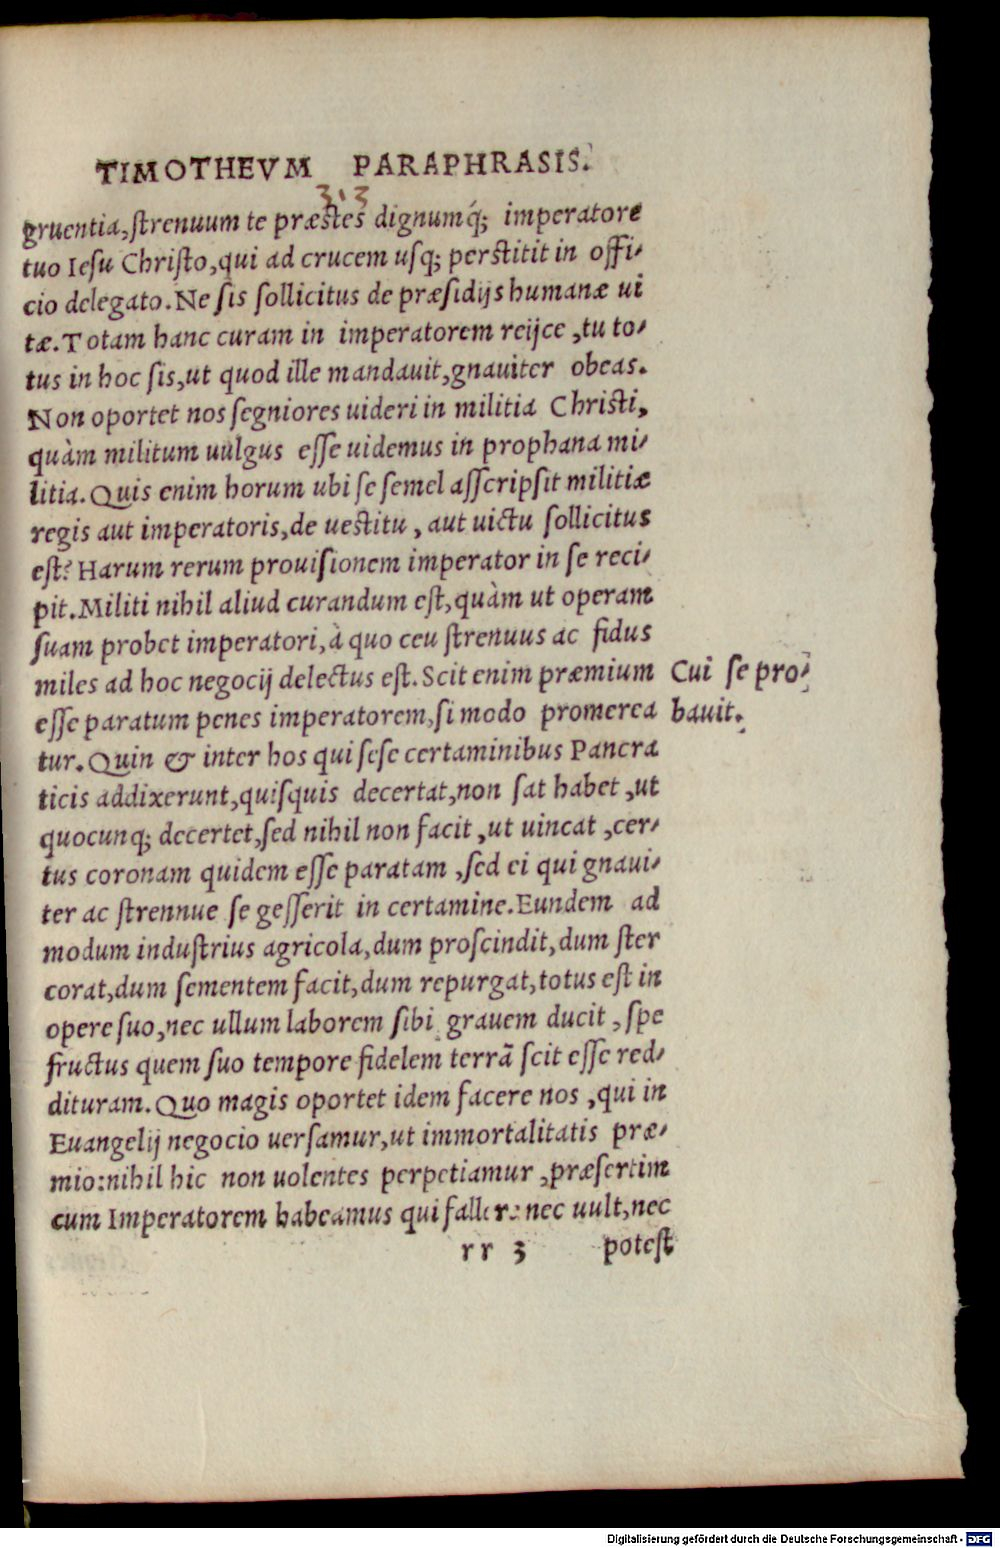 TIMOTHEVM PARAPHRASIS.
313
gruentia,ſtrenuum te præſtes dignumq́; imperatore
tuo Ieſu Chriſto,qui ad crucem uſq; perſtitit in offi-
cio delegato.Ne ſis ſollicitus de præſidijs humanæ ui
tæ.Totam hanc curam in imperatorem reijce ,tu to-
tus in hoc ſis,ut quod ille mandauit,gnauiter obeas.
Non oportet nos ſegniores uideri in militia Chriſti,
quàm militum uulgus eſſe uidemus in prophana mi-
litia.Quis enim horum ubi ſe ſemel aſſcripſit militiæ
regis aut imperatoris,de ueſtitu , aut uictu ſollicitus
eſt? Harum rerum prouiſionem imperator in ſe reci-
pit.Militi nihil aliud curandum eſt,quàm ut operam
ſuam probet imperatori,à quo ceu ſtrenuus ac fidus
miles ad hoc negocij delectus eſt.Scit enim præmium
Cui ſe pro-
eſſe paratum penes imperatorem,ſi modo promerea
bauit.
tur.Quin & inter hos qui ſeſe certaminibus Pancra
ticis addixerunt,quiſquis decertat,non ſat habet ,ut
quocunq; decertet,ſed nihil non facit ,ut uincat ,cer-
tus coronam quidem eſſe paratam ,ſed ei qui gnaui-
ter ac ſtrennue ſe geſſerit in certamine.Eundem ad
modum induſtrius agricola,dum proſcindit,dum ſter
corat,dum ſementem facit,dum repurgat,totus eſt in
opere ſuo,nec ullum laborem ſibi grauem ducit ,ſpe
fructus quem ſuo tempore fidelem terrã ſcit eſſe red-
dituram.Quo magis oportet idem facere nos ,qui in
Euangelij negocio uerſamur,ut immortalitatis præ-
mio:nihil hic non uolentes perpetiamur ,præſertim
cum Imperatorem habeamus qui fallere nec uult,nec
rr 3 poteſt
Digitalisierung gefördert durch die Deutsche Forschungsgemeinschaft - DFG